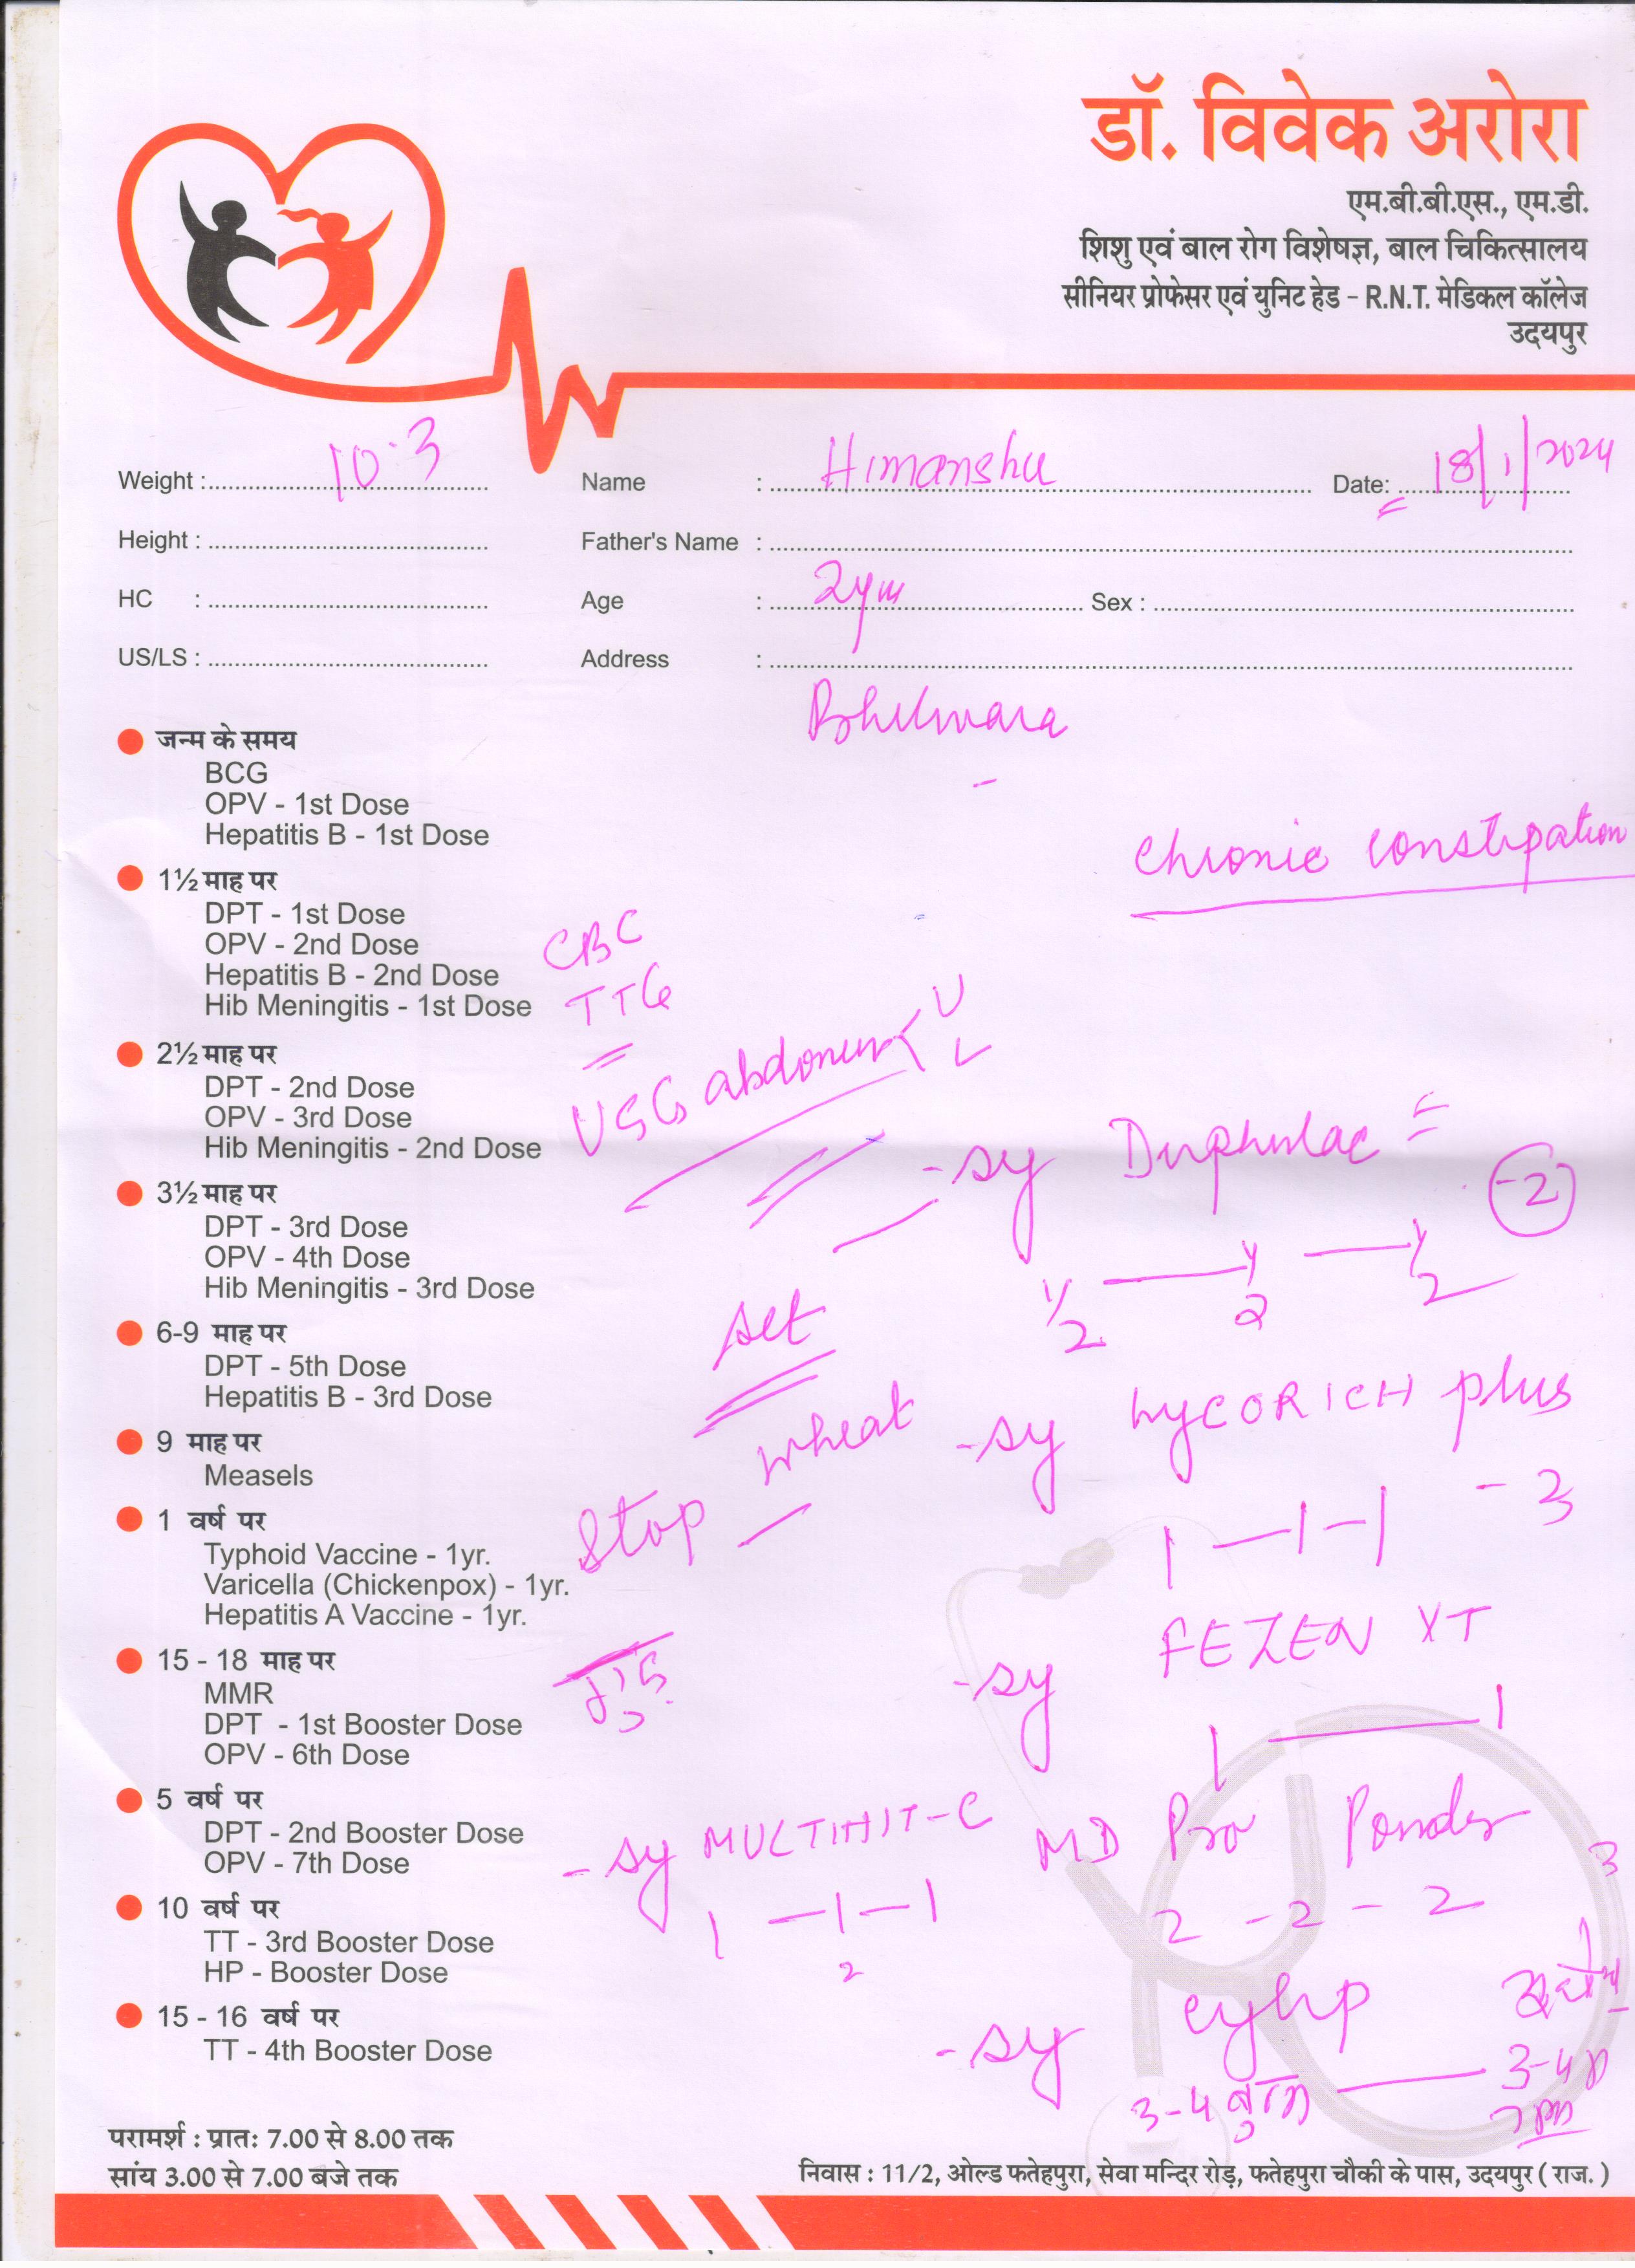 डॉ. विवेक अरोरा
एम.बी.बी.एस., एम.डी.
शिशु एवं बाल रोग विशेषज्ञ, बाल चिकित्सालय
सीनियर प्रोफेसर एवं युनिट हेड - R.N.T. मेडिकल कॉलेज
उदयपुर
Weight : 10.3 Name : Himanshu Date: 18/1/2024
Height : Father's Name :
HC : Age : 2 Sex :
US/LS : Address :
जन्म के समय
BCG
OPV - 1st Dose
Hepatitis B - 1st Dose
Chronic constipation
1½ माह पर
DPT - 1st Dose
OPV - 2nd Dose
Hepatitis B - 2nd Dose
Hib Meningitis - 1st Dose
CBC
TTG
USG abdomen < U
L
2½ माह पर
DPT - 2nd Dose
OPV - 3rd Dose
Hib Meningitis - 2nd Dose
- sy Duphulac = -2
½ — ½ — ½
3½ माह पर
DPT - 3rd Dose
OPV - 4th Dose
Hib Meningitis - 3rd Dose
6-9 माह पर
DPT - 5th Dose
Hepatitis B - 3rd Dose
Stop wheat
- sy LYCORICH plus
1 — 1 — 1 - 3
9 माह पर
Measels
1 वर्ष पर
Typhoid Vaccine - 1yr.
Varicella (Chickenpox) - 1yr.
Hepatitis A Vaccine - 1yr.
- sy FEZEN XT
1 — 1
15 - 18 माह पर
MMR
DPT - 1st Booster Dose
OPV - 6th Dose
5 वर्ष पर
DPT - 2nd Booster Dose
OPV - 7th Dose
- sy MULTIHIT-C
1 — 1 — 1
2
MD Pro Powder 3
2 - 2 - 2
10 वर्ष पर
TT - 3rd Booster Dose
HP - Booster Dose
15 - 16 वर्ष पर
TT - 4th Booster Dose
- sy
3-4 बुन्द — 3-4
परामर्श : प्रातः 7.00 से 8.00 तक
सांय 3.00 से 7.00 बजे तक
निवास : 11/2, ओल्ड फतेहपुरा, सेवा मन्दिर रोड़, फतेहपुरा चौकी के पास, उदयपुर ( राज. )